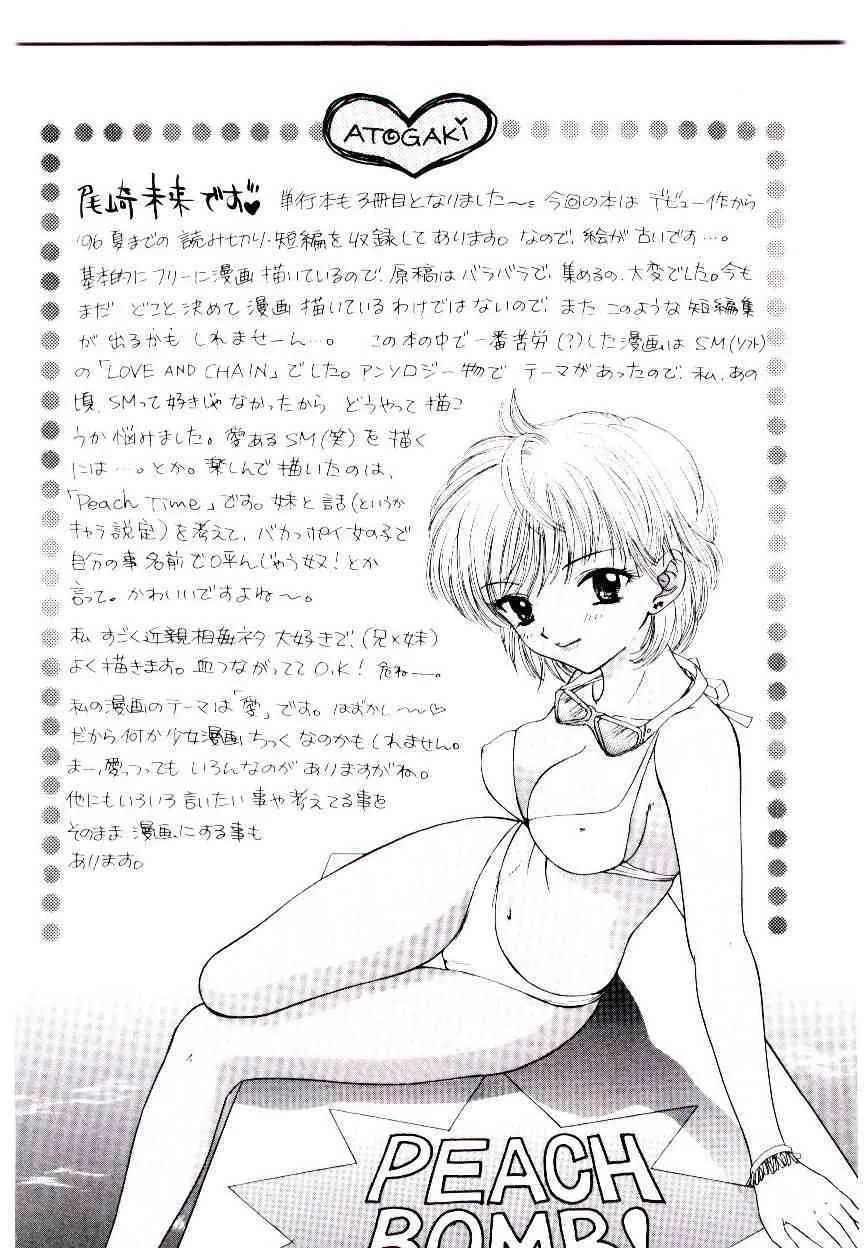 ATOGAKi
尾崎未来です♥ 単行本も3冊目となりました〜。今回の本は デビュー作から
'96夏までの 読み切り・短編を収録してあります。なので、絵が古いです…。
基本的にフリーに漫画描いているので、原稿はバラバラで、集めるの、大変でした。今も
まだ どこと決めて漫画描いているわけではないので、また このような短編集
が出るかもしれませーん…。 この本の中で一番苦労(?)した漫画は SM(ソフト)
の「LOVE AND CHAIN」でした。アンソロジー物で テーマがあったので、私、あの
頃、SMって好きじゃなかったから どうやって描こ
うか悩みました。愛あるSM(笑)を描く
には…。とか。楽しんで描いたのは、
「Peach Time」です。妹と話(というか
キャラ設定)を考えて、バカっポイ女の子で
自分の事名前で呼んじゃう奴!とか
言って。かわいいですよね〜。
私 すごく近親相姦ネタ大好きで、(兄×妹)
よく描きます。血つながっててO.K! 危ねー。
私の漫画のテーマは「愛」です。はずかし〜〜♡
だから何か少女漫画ちっくなのかもしれません。
まー、愛っつっても いろんなのがありますがね。
他にもいろいろ言いたい事や考えてる事を
そのまま漫画にする事も
あります。
PEACH
BOMB!